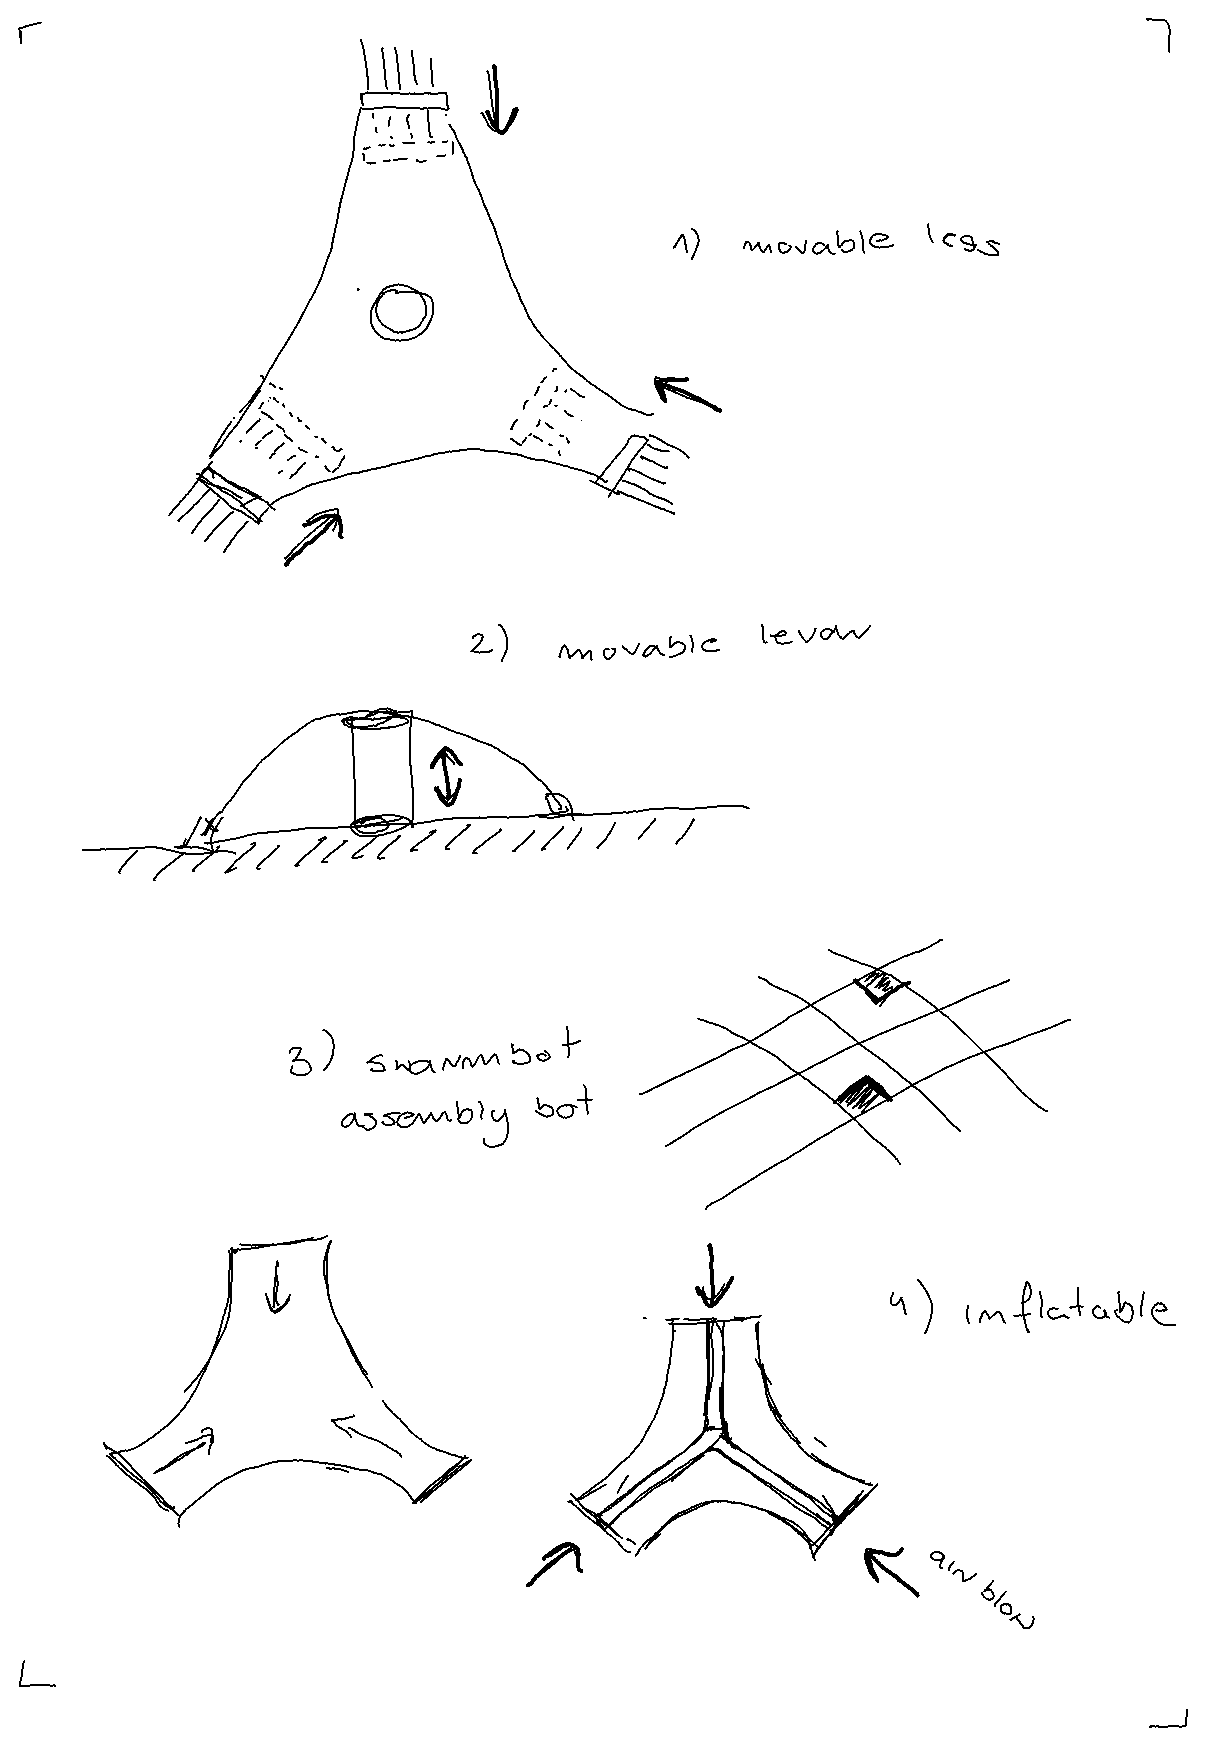 1) movable legs
2) movable levar
3) swarmbot
assembly bot
4) inflatable
air blow